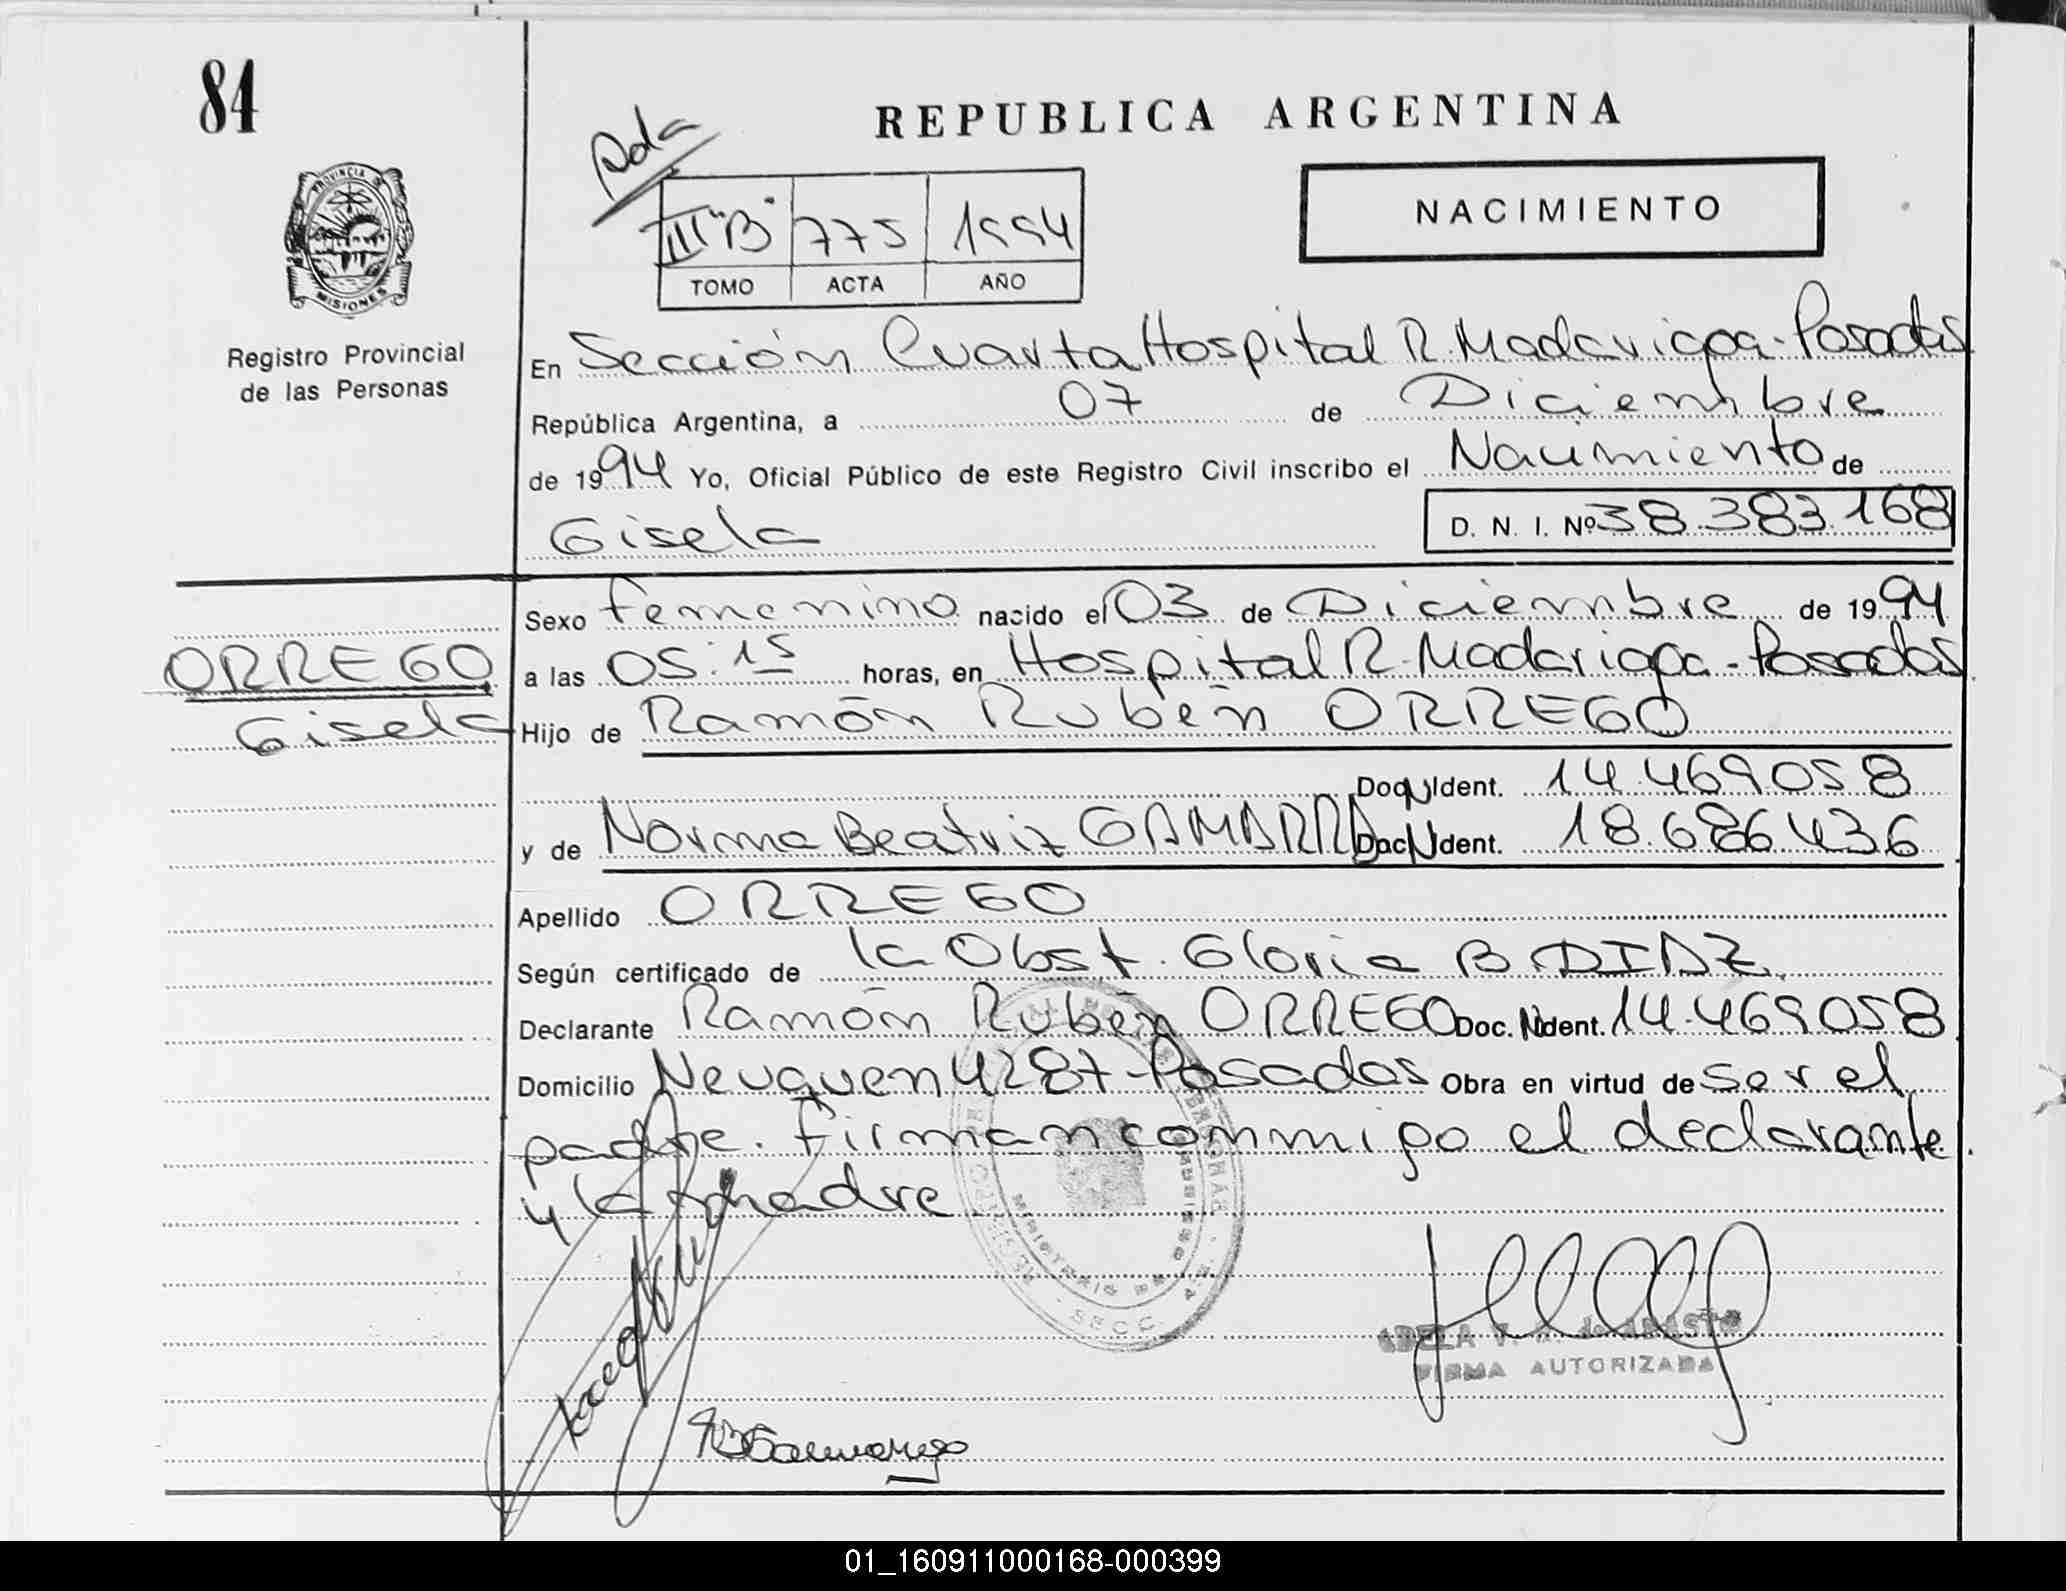 84
REPUBLICA ARGENTINA
Pda
III "B" 775 1994
TOMO ACTA AÑO
NACIMIENTO
PROVINCIA
MISIONES
Registro Provincial
de las Personas
En Sección Cuarta Hospital R. Madariaga - Posadas
República Argentina, a 07 de Diciembre
de 1994 Yo, Oficial Público de este Registro Civil inscribo el Nacimiento de
Gisela D. N. I. Nº 38.383.168
Sexo femenino nacido el 03 de Diciembre de 1994
ORREGO
a las 05:15 horas, en Hospital R. Madariaga - Posadas
Gisela
Hijo de Ramón Rubén ORREGO
Doc. N Ident. 14.469058
y de Norma Beatriz GAMARRA Doc. N Ident. 18.686436
Apellido ORREGO
Según certificado de la Obst. Gloria B. DIAZ
Declarante Ramón Rubén ORREGO Doc. N Ident. 14.469058
Domicilio Neuquen 4287 - Posadas Obra en virtud de ser el
padre. Firman conmigo el declarante
y la madre
MINISTERIO DE GOBIERNO
SECC.
FIRMA AUTORIZADA
01_160911000168-000399